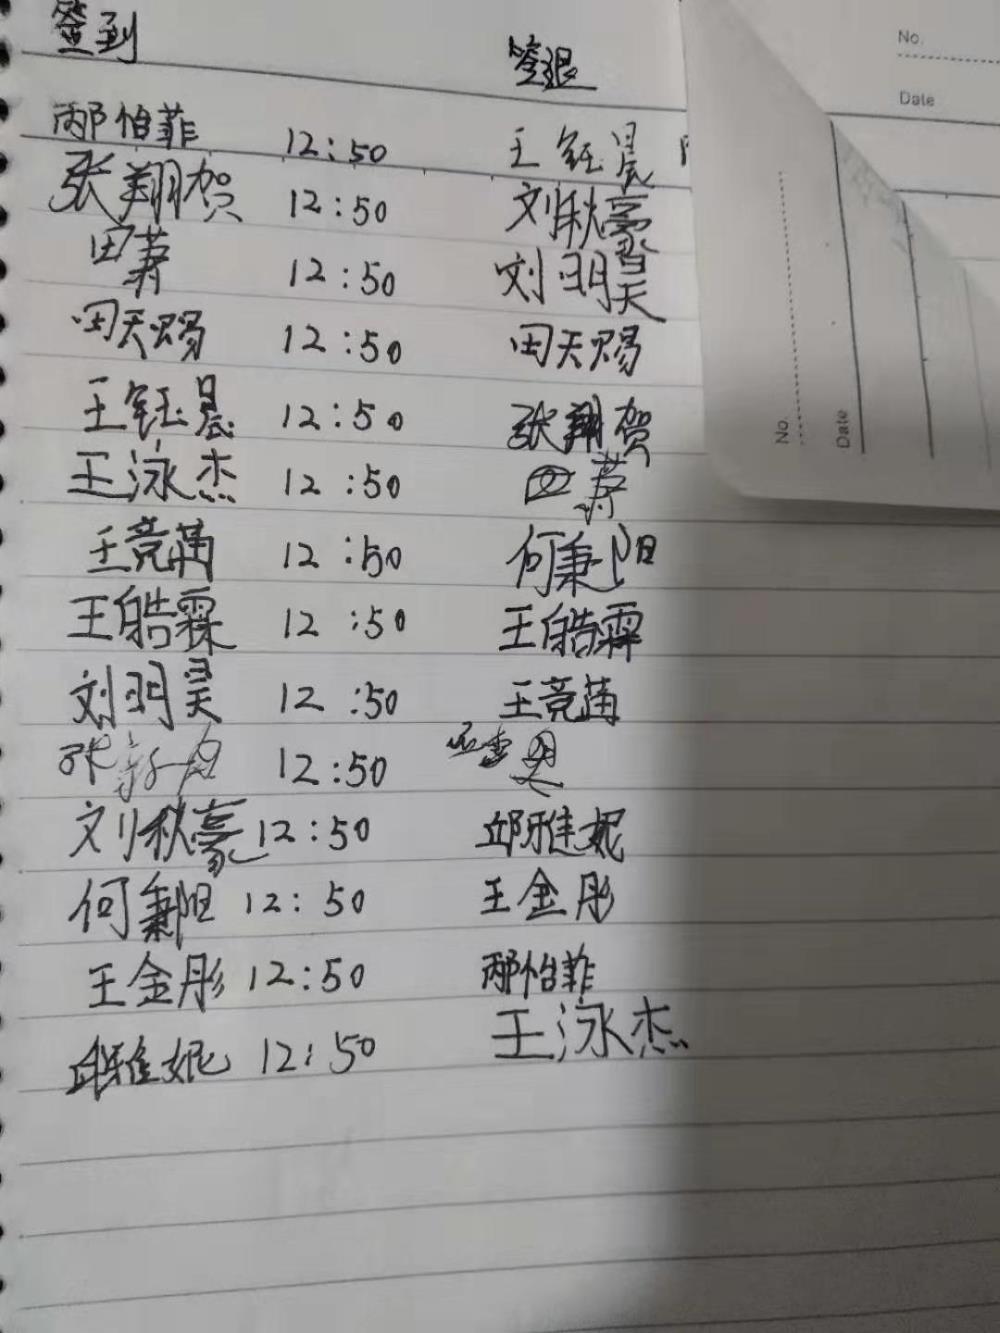 签到 签退 No.
Date
邴怡菲 12:50 王钰晨
张翔贺 12:50 刘秋豪
田 12:50 刘明昊
田天赐 12:50 田天赐
王钰晨 12:50 张翔贺
王泳杰 12:50
王竞菡 12:50 何秉阳
王皓霖 12:50 王皓霖
刘明昊 12:50 王竞菡
12:50
刘秋豪 12:50 邱雅妮
何秉阳 12:50 王金彤
王金彤 12:50 邴怡菲
邱雅妮 12:50 王泳杰
No.
Date